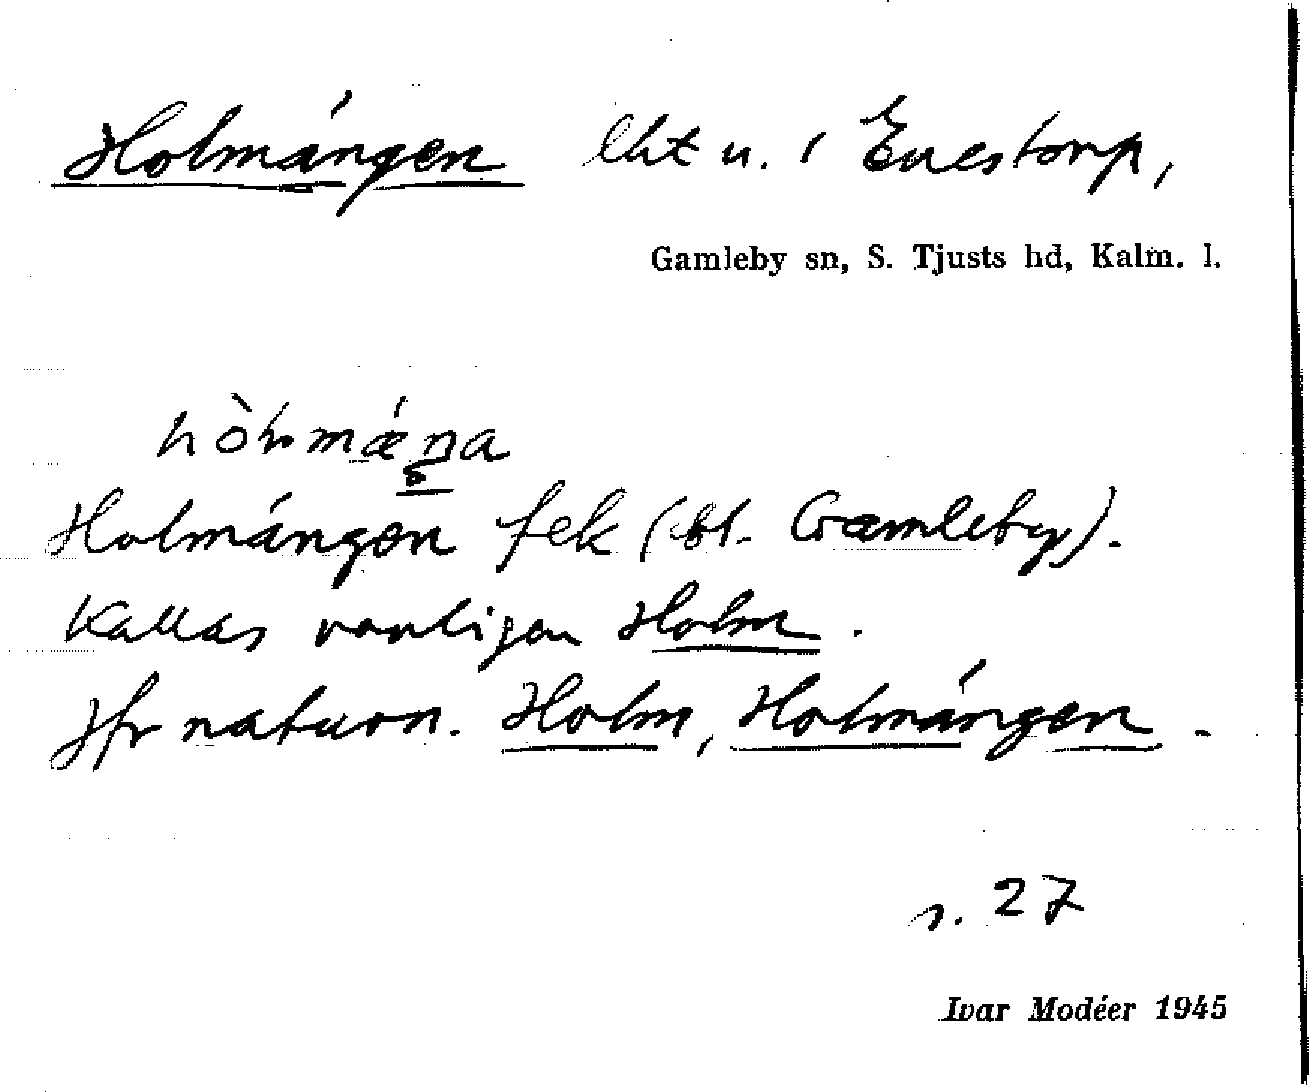 Holmängen lht u. / Enestorp,
Gamleby sn, S. Tjusts hd, Kalm. l.
Holmängen fek (bl. Gamleby).
Kallas vanligen Holm.
Jfr naturn. Holm, Holmängen.
s. 27
Ivar Modéer 1945